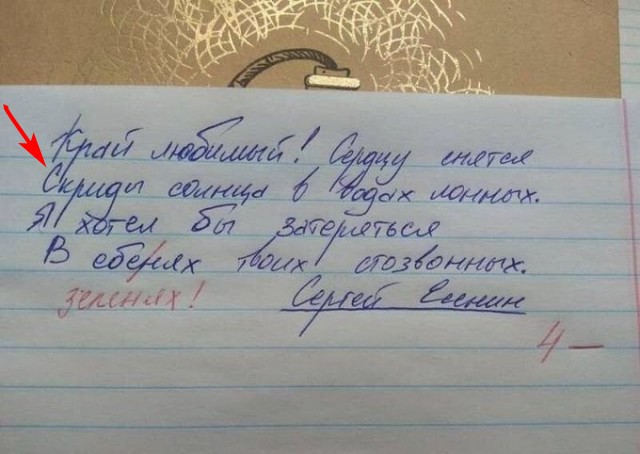 Край любимый! Сердцу снятся
Скриды солнца в водах лонных.
Я хотел бы затеряться
В ебенях твоих стозвонных.
зеленях!
Сергей Есенин
4 —